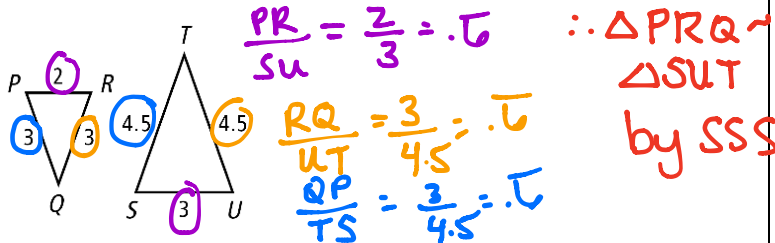 P 2 R
3 3
Q
T
4.5 4.5
S 3 U
PR/SU = 2/3 = .6̅
RQ/UT = 3/4.5 = .6̅
QP/TS = 3/4.5 = .6̅
∴ △PRQ ~
△SUT
by SSS